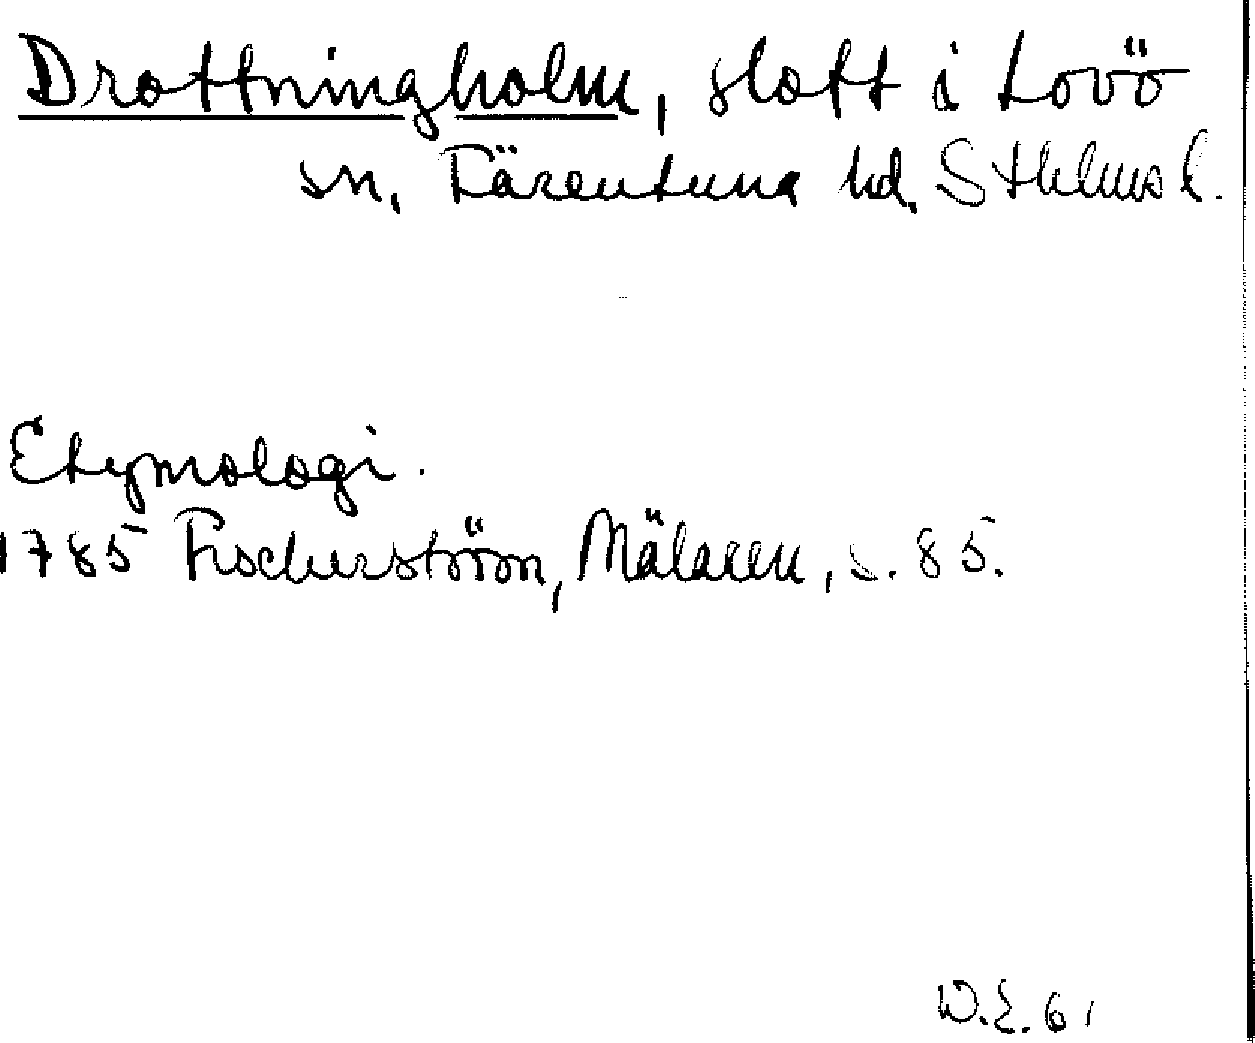 Drottningholm, slott i Lovö
sn, Färentuna hd, Sthlms l.
Etymologi.
1785 Fischerström, Mälaren, s. 85.
W.E. 61